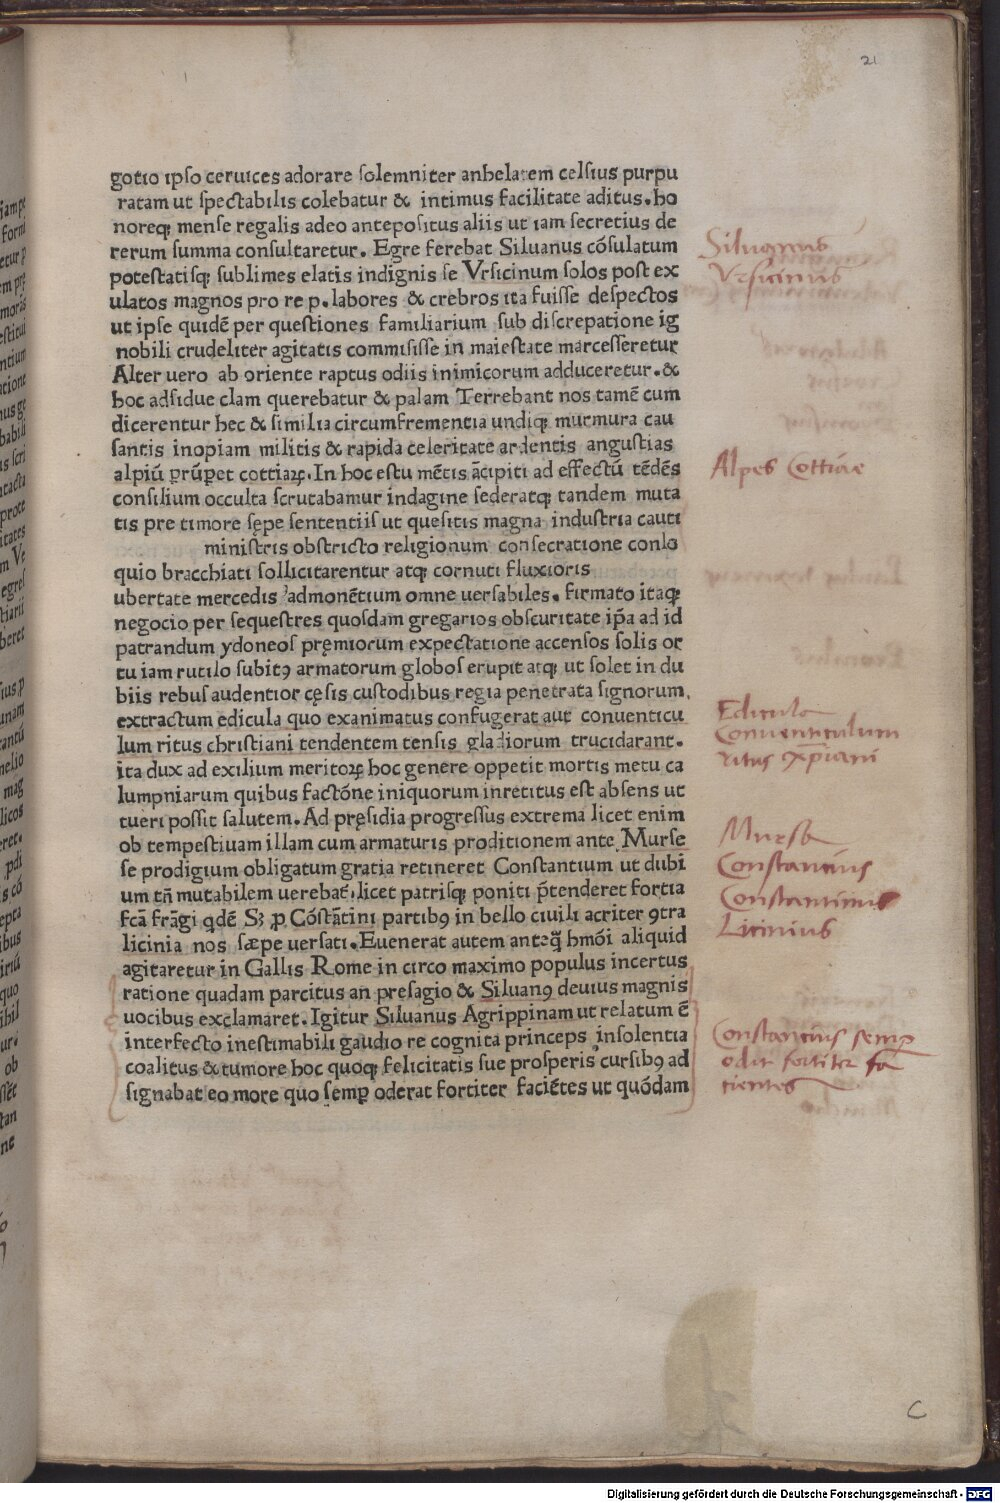 21
gotio ipso ceruices adorare solemniter anhelatem celsius purpu
ratam ut spectabilis colebatur & intimus facilitate aditus. ho
noreqꝫ mense regalis adeo antepositus aliis ut iam secretius de
rerum summa consultaretur. Egre ferebat Siluanus cōsulatum
potestatisqꝫ sublimes elatis indignis se Vrsicinum solos post ex
ulatos magnos pro re p. labores & crebros ita fuisse despectos
ut ipse quidē per questiones familiarium sub discrepatione ig
nobili crudeliter agitatis commisisse in maiestate marcesseretur
Alter uero ab oriente raptus odiis inimicorum adduceretur. &
hoc adsidue clam querebatur & palam Terrebant nos tamē cum
dicerentur hec & similia circumfrementia undiqꝫ murmura cau
santis inopiam militis & rapida celeritate ardentis angustias
alpiū ꝑrūꝑet cottiaꝝ. In hoc estu mētis ācipiti ad effectū tēdēs
consilium occulta scrutabamur indagine sederatqꝫ tandem muta
tis pre timore sępe sententiis ut quesitis magna industria cauti
ministris obstricto religionum consecratione conlo
quio bracchiati sollicitarentur atqꝫ cornuti fluxioris
ubertate mercedis admonētium omne uersabiles. firmato itaqꝫ
negocio per sequestres quosdam gregarios obscuritate ip̄a ad id
patrandum ydoneos pręmiorum expectatione accensos solis or
tu iam rutilo subitꝯ armatorum globos erupit atqꝫ ut solet in du
biis rebus audentior cęsis custodibus regia penetrata signorum
extractum edicula quo exanimatus confugerat aut conuenticu
lum ritus christiani tendentem tensis gladiorum trucidarant.
ita dux ad exilium meritoꝝ hoc genere oppetit mortis metu ca
lumpniarum quibus factōne iniquorum inretitus est absens ut
tueri possit salutem. Ad pręsidia progressus extrema licet enim
ob tempestiuam illam cum armaturis proditionem ante Murse
se prodigium obligatum gratia retineret Constantium ut dubi
um tn̄ mutabilem uerebat̄. licet patrisqꝫ poniti p̄tenderet fortia
fcā frāgi qdē Sꝫ ꝓ Cōstātini partibꝯ in bello ciuili acriter ꝯtra
licinia nos sæpe uersati. Euenerat autem anteq̄ hmōi aliquid
agitaretur in Gallis Rome in circo maximo populus incertus
ratione quadam parcitus an presagio & Siluanꝯ deuius magnis
uocibus exclamaret. Igitur Siluanus Agrippinam ut relatum ē
interfecto inestimabili gaudio re cognita princeps insolentia
coalitus & tumore hoc quoqꝫ felicitatis sue prosperis cursibꝯ ad
signabat eo more quo semꝑ oderat fortiter faciētes ut quōdam
Siluanus
Vrsicinus
Alpes Cottiae
Edicula
Conuenticulum
ritus xp̄iani
Mursa
Constancius
Constantinus
Licinius
Constancius semꝑ
odit fortiter fa
cientes
C
Digitalisierung gefördert durch die Deutsche Forschungsgemeinschaft - DFG